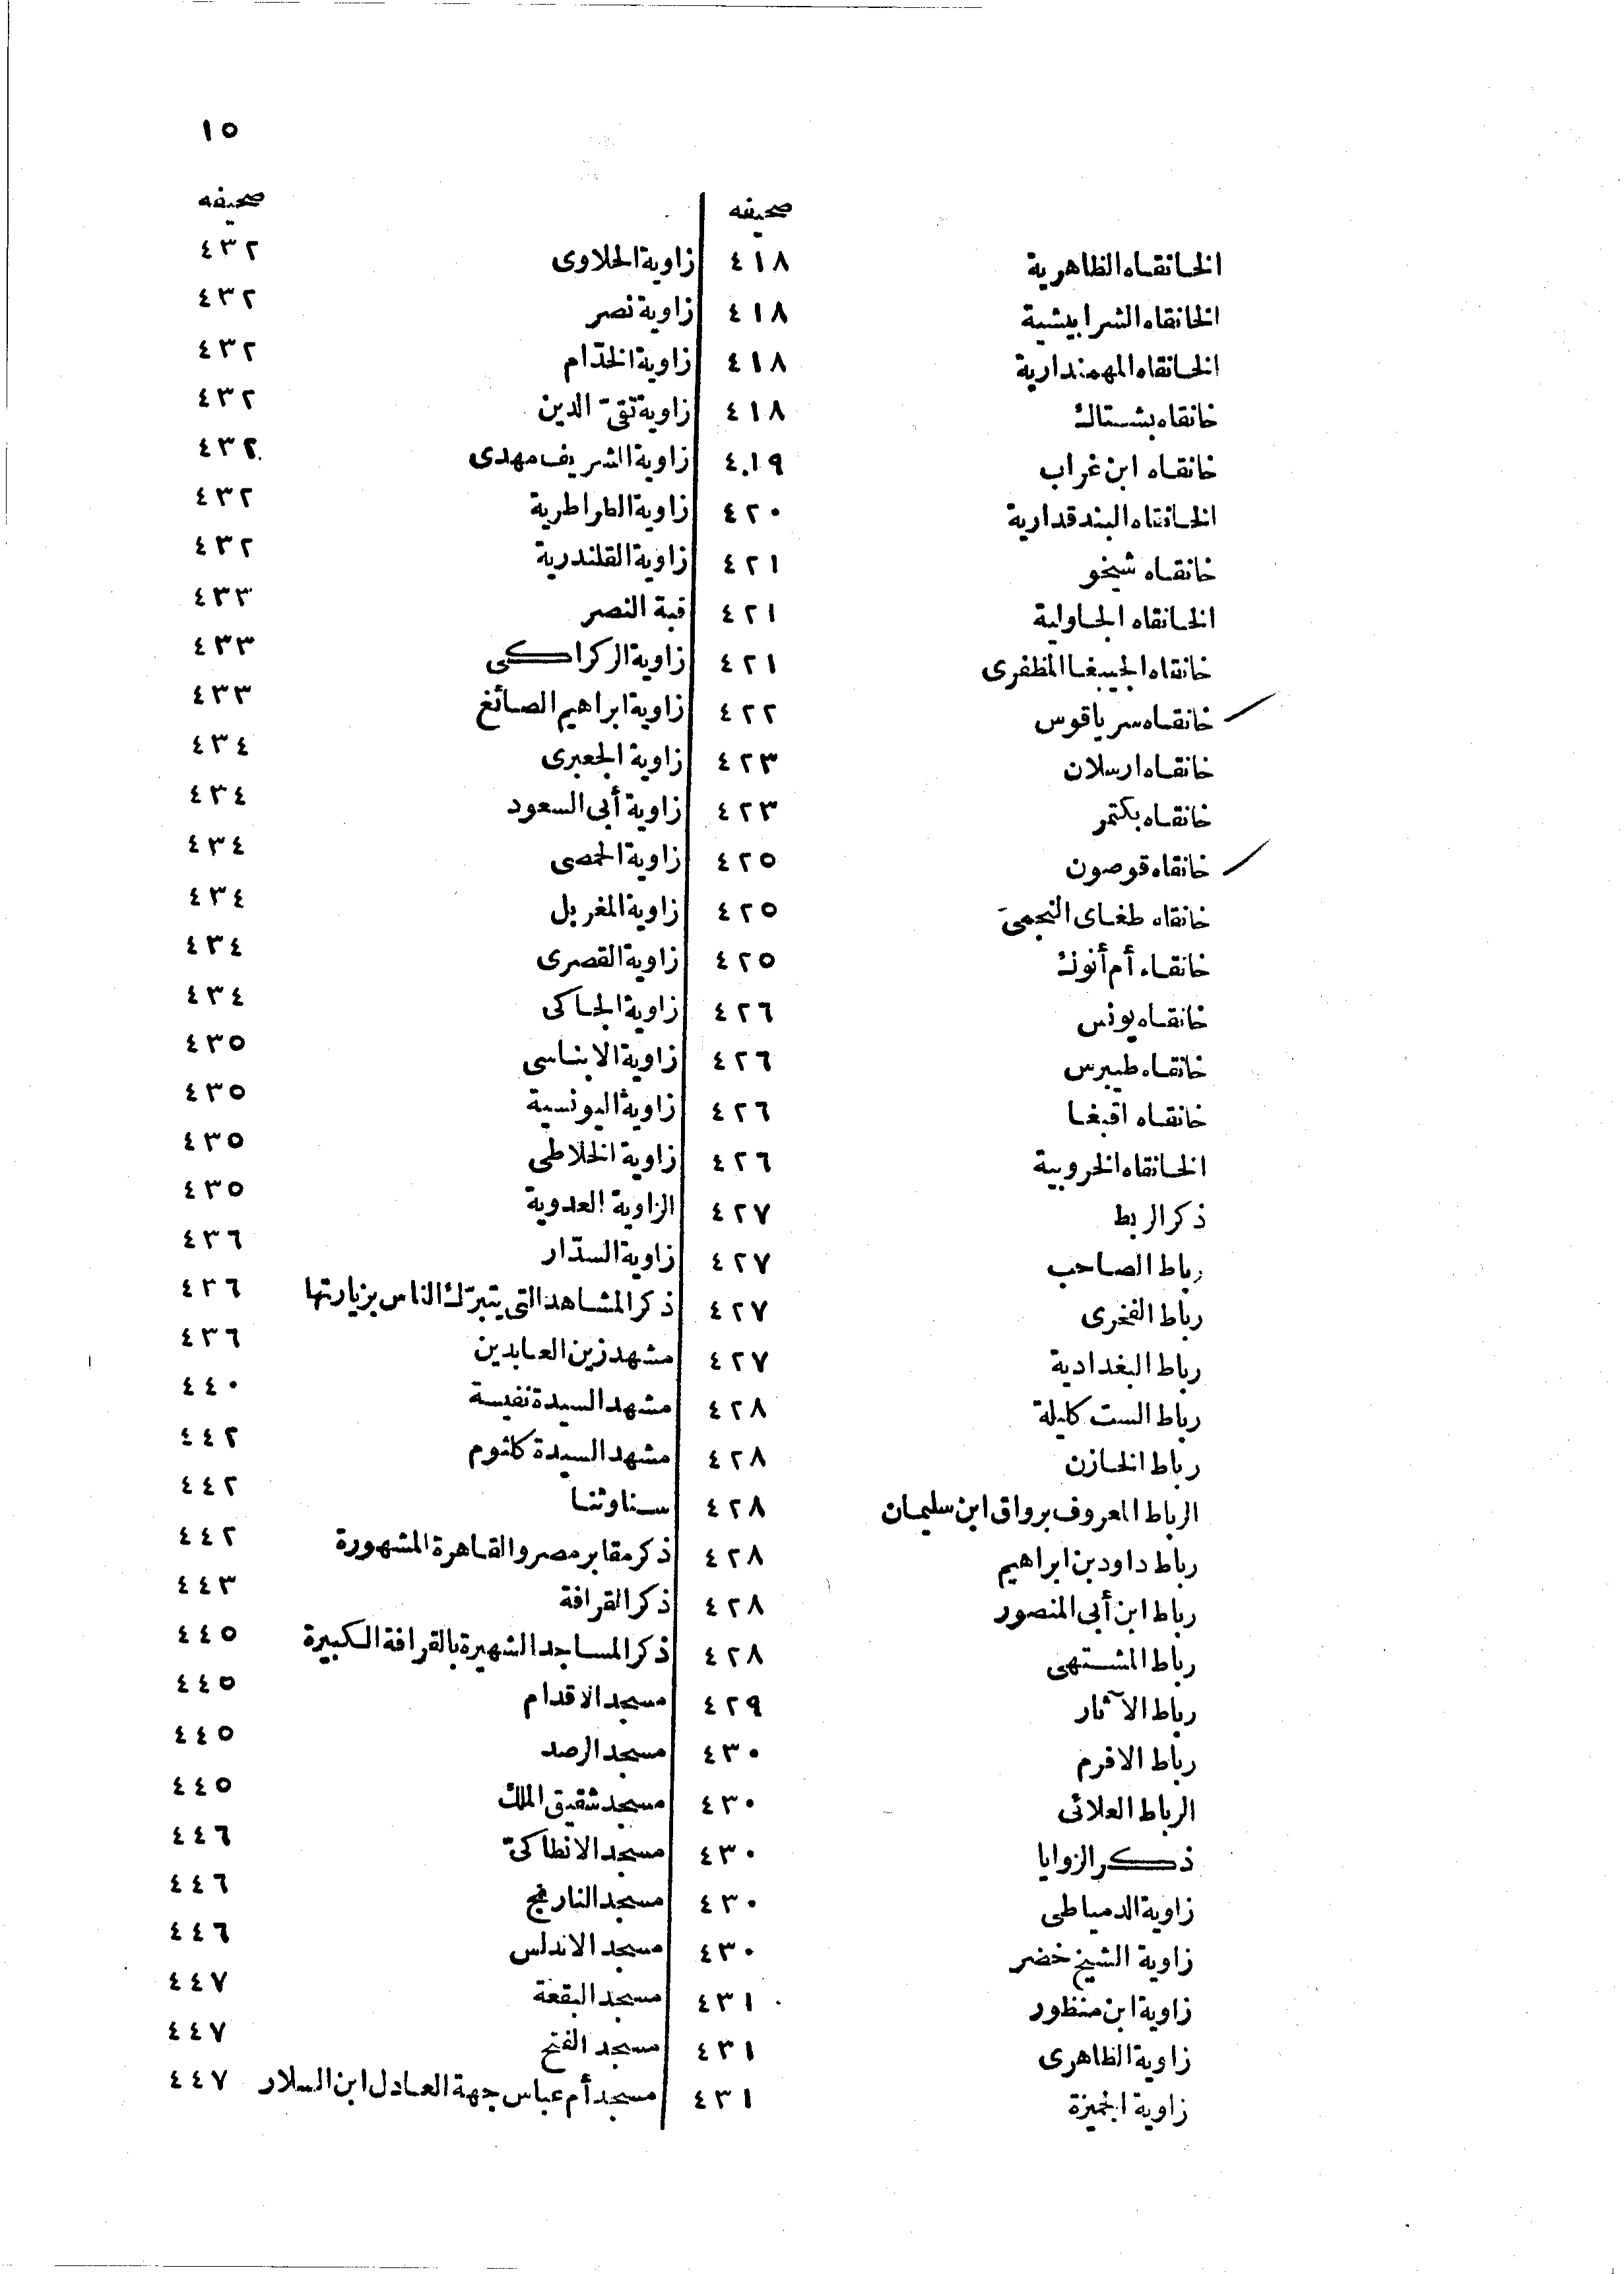 ١٥
صحيفه
الخانقاه الظاهرية ٤١٨
الخانقاه الشرابيشية ٤١٨
الخانقاه المهمندارية ٤١٨
خانقاه بشتاك ٤١٨
خانقاه ابن غراب ٤١٩
الخانقاه البندقدارية ٤٢٠
خانقاه شيخو ٤٢١
الخانقاه الجاولية ٤٢١
خانقاه الجيبغا المظفرى ٤٢١
خانقاه سرياقوس ٤٢٢
خانقاه ارسلان ٤٢٣
خانقاه بكتمر ٤٢٣
خانقاه قوصون ٤٢٥
خانقاه طغاى النجمى ٤٢٥
خانقاه أم أنوك ٤٢٥
خانقاه يونس ٤٢٦
خانقاه طيبرس ٤٢٦
خانقاه اقبغا ٤٢٦
الخانقاه الخروبية ٤٢٦
ذكر الربط ٤٢٧
رباط الصاحب ٤٢٧
رباط الفخرى ٤٢٧
رباط البغدادية ٤٢٧
رباط الست كليلة ٤٢٨
رباط الخازن ٤٢٨
الرباط المعروف برواق ابن سليمان ٤٢٨
رباط داود بن ابراهيم ٤٢٨
رباط ابن أبى المنصور ٤٢٨
رباط المشتهى ٤٢٨
رباط الآثار ٤٢٩
رباط الافرم ٤٣٠
الرباط العلائى ٤٣٠
ذكر الزوايا ٤٣٠
زاوية الدمياطى ٤٣٠
زاوية الشيخ خضر ٤٣٠
زاوية ابن منظور ٤٣١
زاوية الظاهرى ٤٣١
زاوية الجميزة ٤٣١
صحيفه
زاوية الحلاوى ٤٣٢
زاوية نصر ٤٣٢
زاوية الخدّام ٤٣٢
زاوية تقىّ الدين ٤٣٢
زاوية الشريف مهدى ٤٣٢
زاوية الطراطرية ٤٣٢
زاوية القلندرية ٤٣٢
قبة النصر ٤٣٣
زاوية الركراكى ٤٣٣
زاوية ابراهيم الصائغ ٤٣٣
زاوية الجعبرى ٤٣٤
زاوية أبى السعود ٤٣٤
زاوية الحمصى ٤٣٤
زاوية المغربل ٤٣٤
زاوية القصرى ٤٣٤
زاوية الجاكى ٤٣٤
زاوية الابناسى ٤٣٥
زاوية اليونسية ٤٣٥
زاوية الخلاطى ٤٣٥
الزاوية العدوية ٤٣٥
زاوية السدّار ٤٣٦
ذكر المشاهد التى يتبرّك الناس بزيارتها ٤٣٦
مشهد زين العابدين ٤٣٦
مشهد السيدة نفيسة ٤٤٠
مشهد السيدة كلثوم ٤٤٢
سنا وثنا ٤٤٢
ذكر مقابر مصر والقاهرة المشهورة ٤٤٢
ذكر القرافة ٤٤٣
ذكر المساجد الشهيرة بالقرافة الكبيرة ٤٤٥
مسجد الاقدام ٤٤٥
مسجد الرصد ٤٤٥
مسجد شقيق الملك ٤٤٥
مسجد الانطاكىّ ٤٤٦
مسجد النارنج ٤٤٦
مسجد الاندلس ٤٤٦
مسجد البقعة ٤٤٧
مسجد الفتح ٤٤٧
مسجد أم عباس جهة العادل ابن السلار ٤٤٧